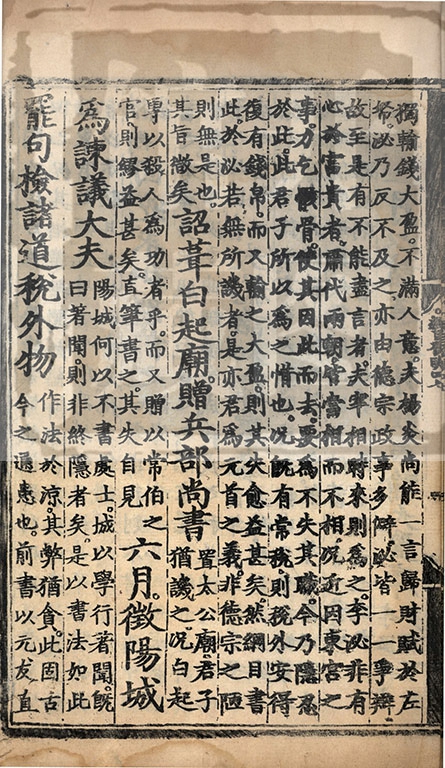 獨輸錢大盈不滿人意夫楊炎尚能一言歸財賦於左
帑泌乃反不及之亦由德宗政事多僻泌皆一一爭辨
故至是有不能盡言者夫宰相時來則為之李泌非有
心於富貴者肅代兩朝皆當相而不相況近因東宮之
事力乞骸骨使其因此而去要為不失其職今乃隱忍
於此此君子所以為之惜也況既有常稅則稅外安得
復有錢帛而又輸之大盈則其失愈益甚矣然綱目書
此於泌若無所譏者是亦君為元首之義非德宗之陋
則無是也
其旨微矣
詔葺白起廟贈兵部尚書
置太公廟君子
猶譏之況白起
專以殺人為功者乎而又贈以常伯之
官則繆益甚矣直筆書之其失自見
六月徵陽城
為諫議大夫
陽城何以不書處士城以學行著聞既
曰著聞則非終隱者矣是以書法如此
罷句檢諸道稅外物
作法於涼其弊猶貪此固古
今之通患也前書以元友直